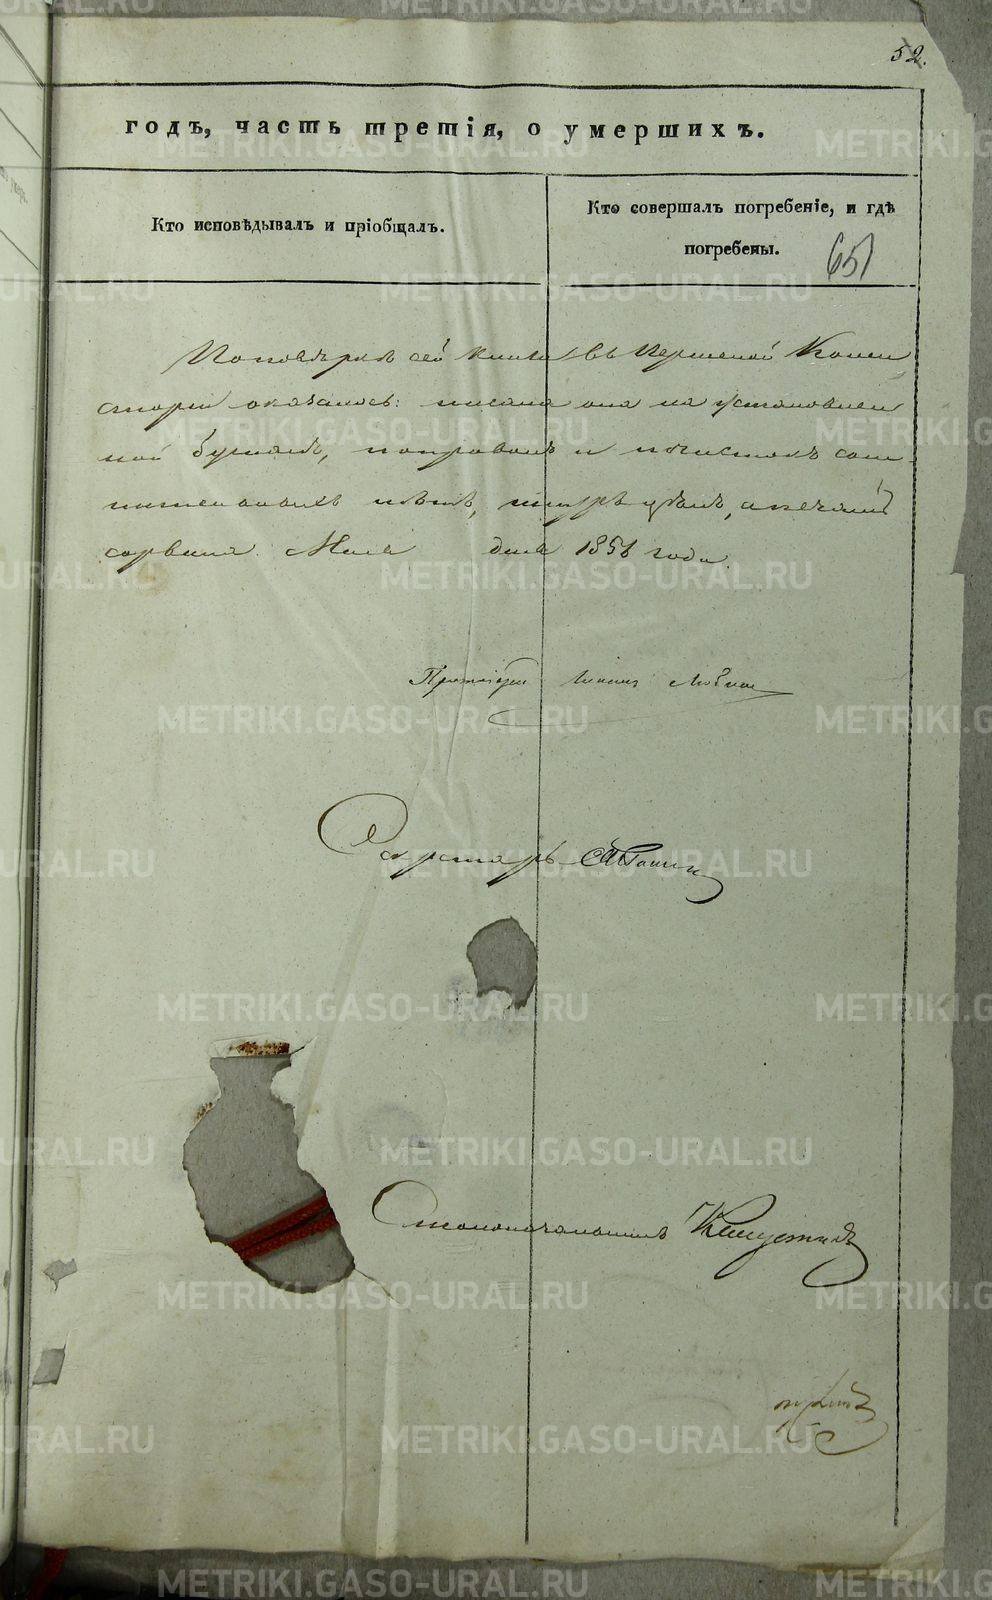 52.
годъ, часть третія, о умершихъ.
Кто исповѣдывалъ и пріобщалъ.
Кто совершалъ погребеніе, и гдѣ
погребены.
651
По повѣркѣ сей книги въ Пермской Конси
сторіи оказалось: писана она на установлен
ной бумагѣ, поправокъ и подчистокъ сом
нительныхъ нѣтъ, шнуръ цѣлъ, а печать
сорвана. Мая дня 1856 года.
Протоіерей
Секретарь
Столоначальникъ
METRIKI.GASO-URAL.RU